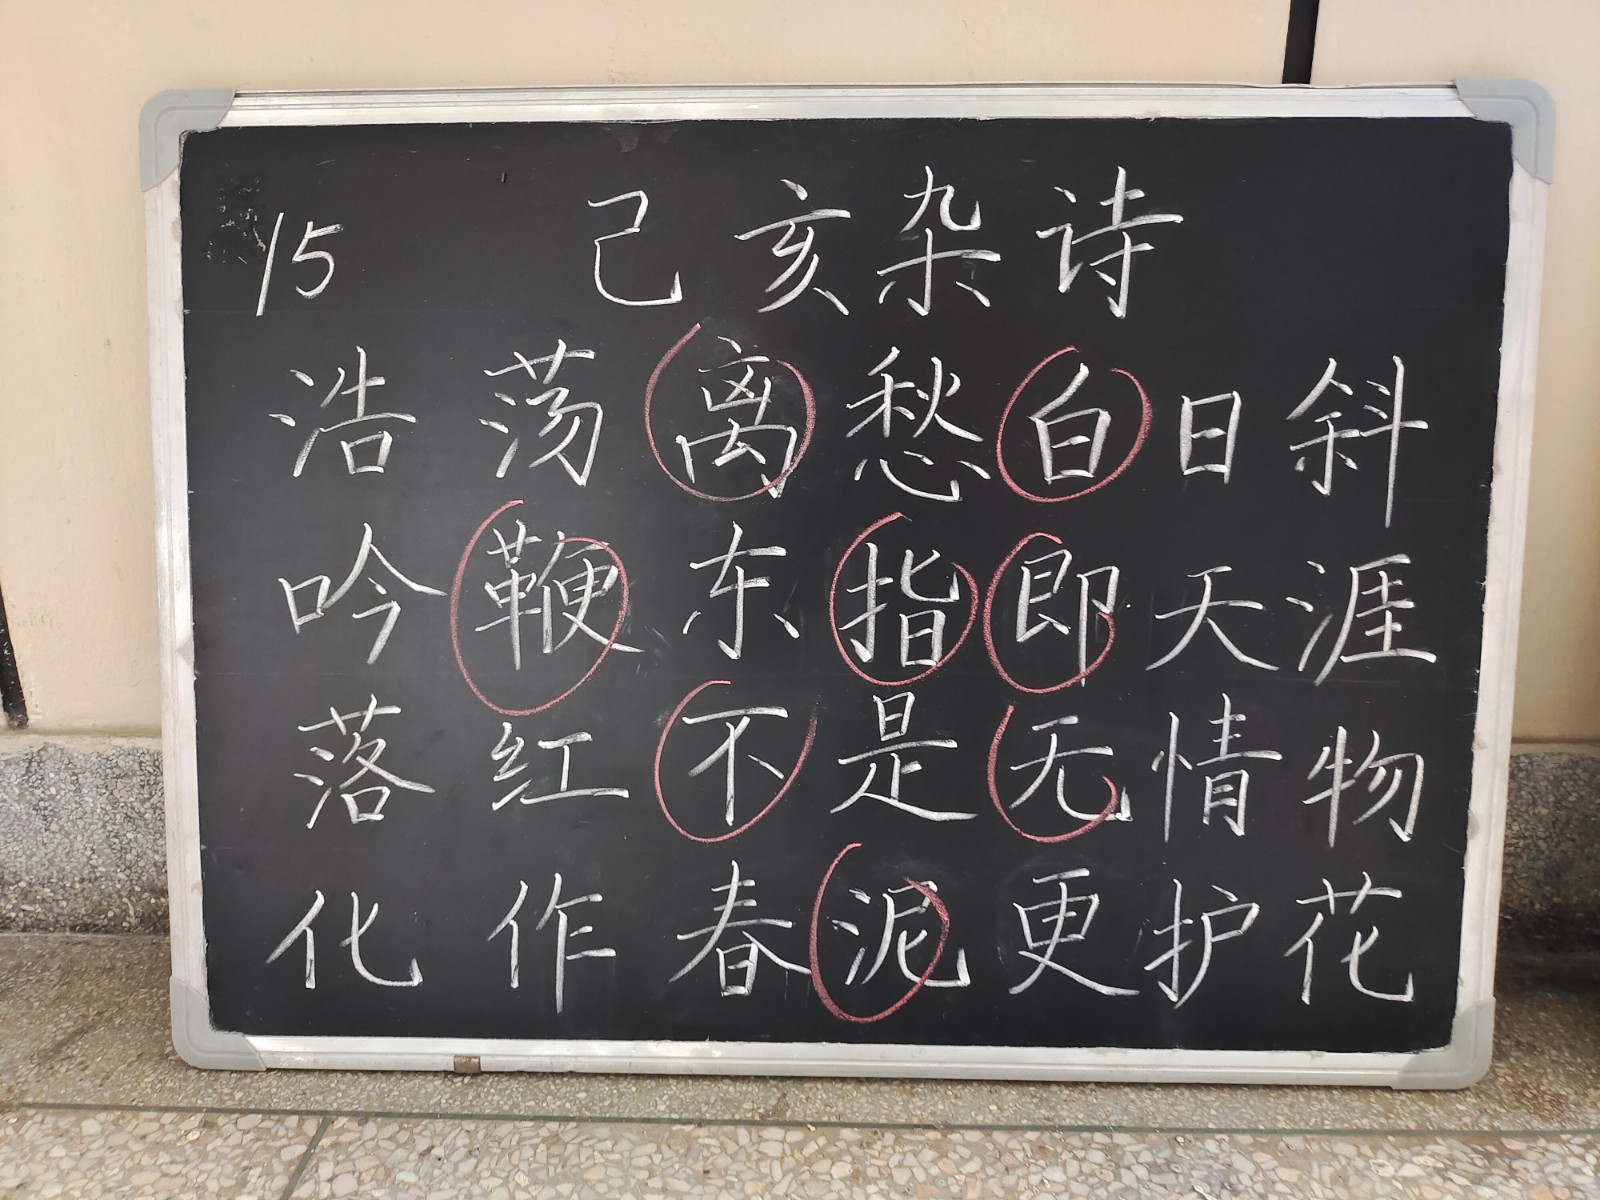 15 己亥杂诗
浩荡离愁白日斜
吟鞭东指即天涯
落红不是无情物
化作春泥更护花